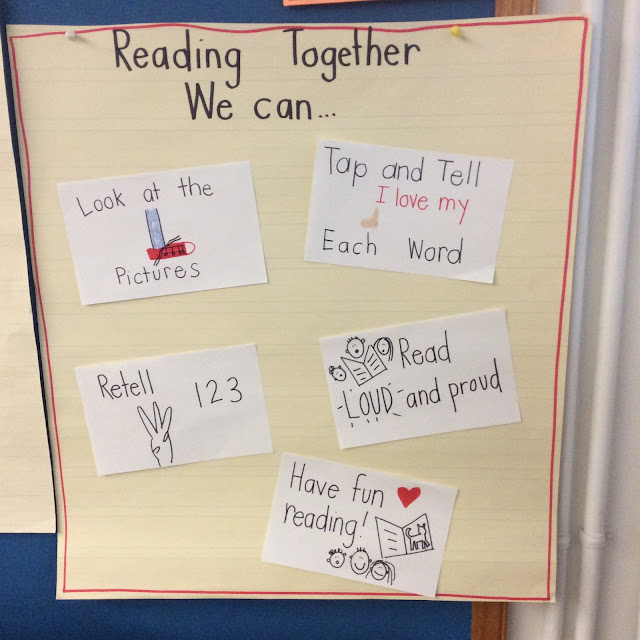 Reading Together
We can...
Look at the
Pictures
Tap and Tell
I love my
Each Word
Retell 1 2 3
Read
LOUD and proud
Have fun
reading!